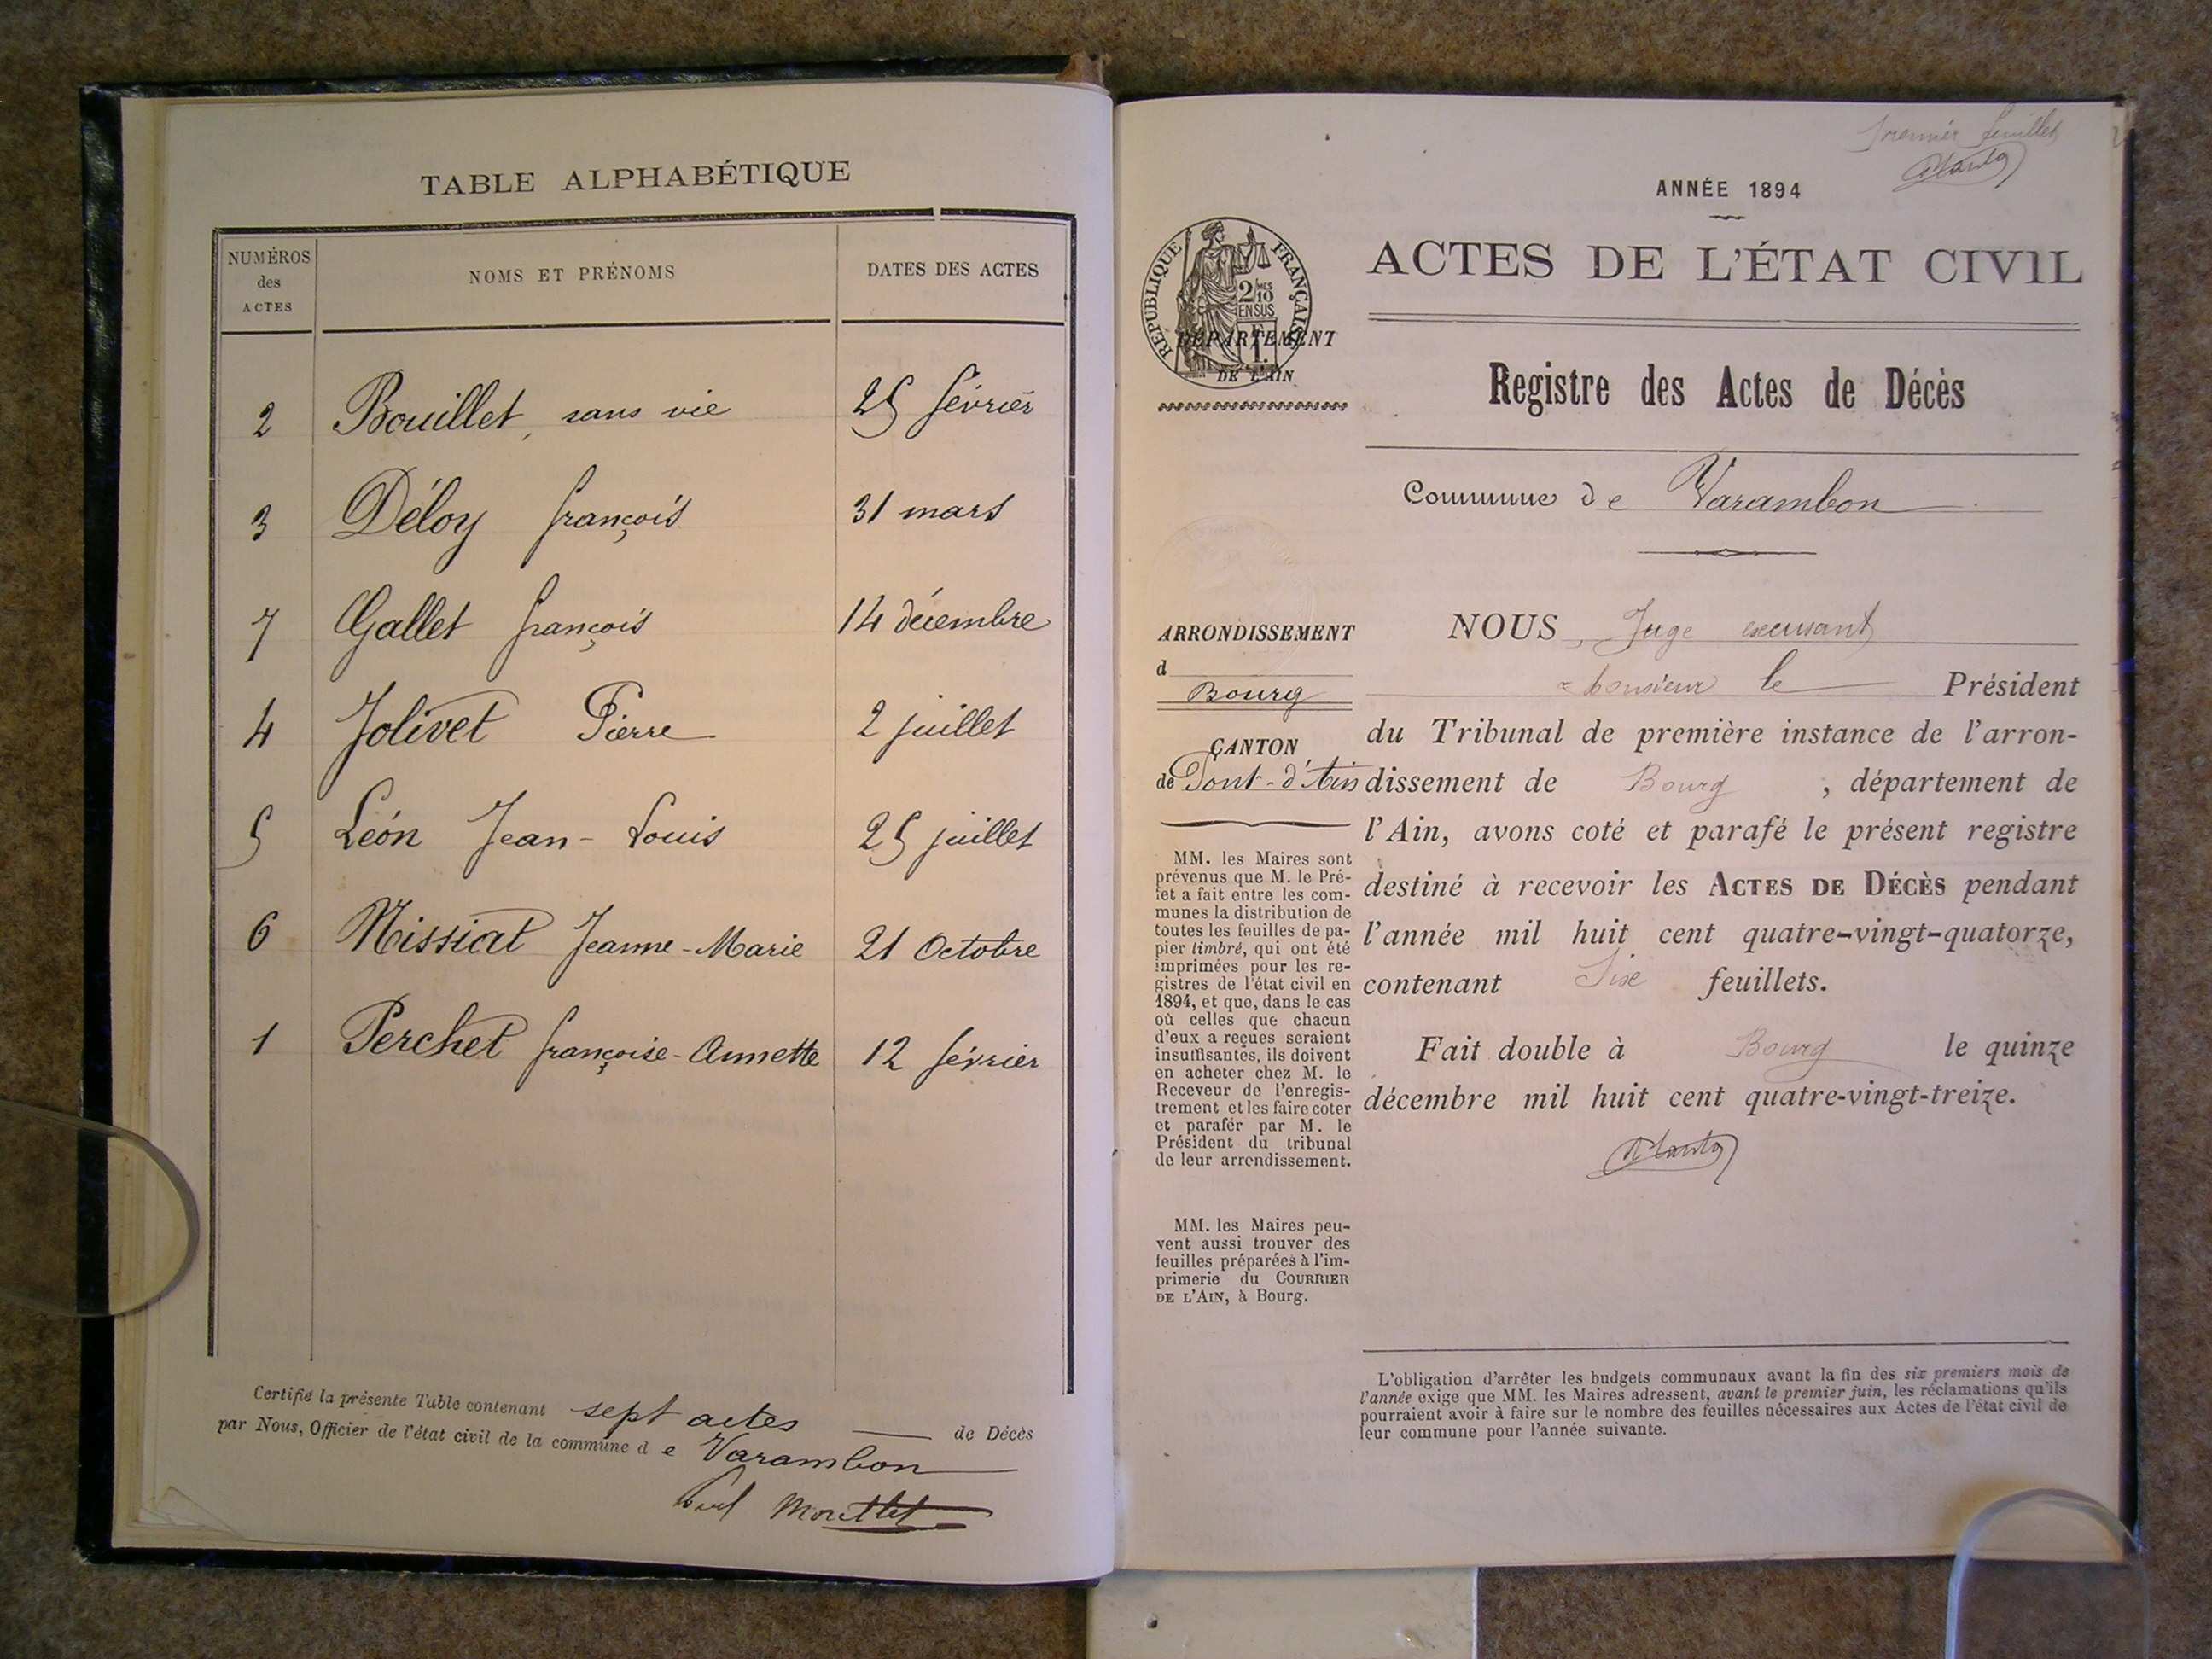 TABLE ALPHABÉTIQUE
NUMÉROS des ACTES
NOMS ET PRÉNOMS
DATES DES ACTES
2 Bouillet, sans vie 25 février
3 Déloy françois 31 mars
7 Gallet françois 14 décembre
4 Jolivet Pierre 2 juillet
5 Léon Jean-Louis 25 juillet
6 Missiat Jeanne-Marie 21 Octobre
1 Perchet françoise-Annette 12 février
Certifié la présente Table contenant sept actes de Décès
par Nous, Officier de l'état civil de la commune d e Varambon
premier feuillet
ANNÉE 1894
RÉPUBLIQUE FRANÇAISE
2 MES 10 EN SUS
DÉPARTEMENT
DE L'AIN
ACTES DE L'ÉTAT CIVIL
Registre des Actes de Décès
Commune de Varambon
ARRONDISSEMENT
d
Bourg
CANTON
de Pont-d'Ain
MM. les Maires sont
prévenus que M. le Pré-
fet a fait entre les com-
munes la distribution de
toutes les feuilles de pa-
pier timbré, qui ont été
imprimées pour les re-
gistres de l'état civil en
1894, et que, dans le cas
où celles que chacun
d'eux a reçues seraient
insuffisantes, ils doivent
en acheter chez M. le
Receveur de l'enregis-
trement et les faire coter
et parafer par M. le
Président du tribunal
de leur arrondissement.
MM. les Maires peu-
vent aussi trouver des
feuilles préparées à l'im-
primerie du COURRIER
DE L'AIN, à Bourg.
NOUS, Juge
monsieur le Président
du Tribunal de première instance de l'arron-
dissement de Bourg, département de
l'Ain, avons coté et parafé le présent registre
destiné à recevoir les ACTES DE DÉCÈS pendant
l'année mil huit cent quatre-vingt-quatorze,
contenant Six feuillets.
Fait double à Bourg le quinze
décembre mil huit cent quatre-vingt-treize.
L'obligation d'arrêter les budgets communaux avant la fin des six premiers mois de
l'année exige que MM. les Maires adressent, avant le premier juin, les réclamations qu'ils
pourraient avoir à faire sur le nombre des feuilles nécessaires aux Actes de l'état civil de
leur commune pour l'année suivante.